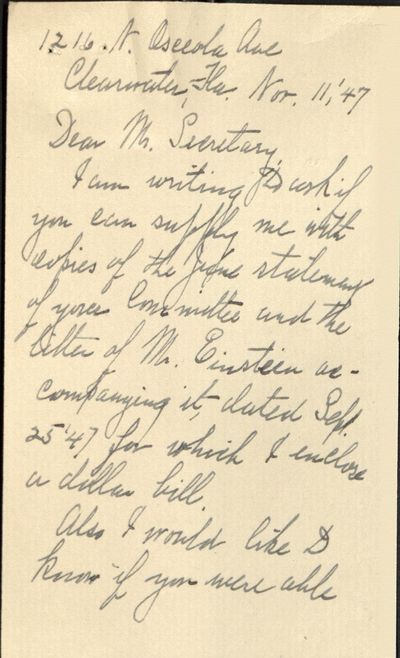 1216. N. Osceola Ave
Clearwater, Fla. Nov. 11, '47
Dear Mr. Secretary,
I am writing to ask if
you can supply me with
copies of the June statement
of your Committee and the
letter of Mr. Einstein ac-
companying it, dated Sept.
25 '47 for which I enclose
a dollar bill.
Also I would like to
know if you were able